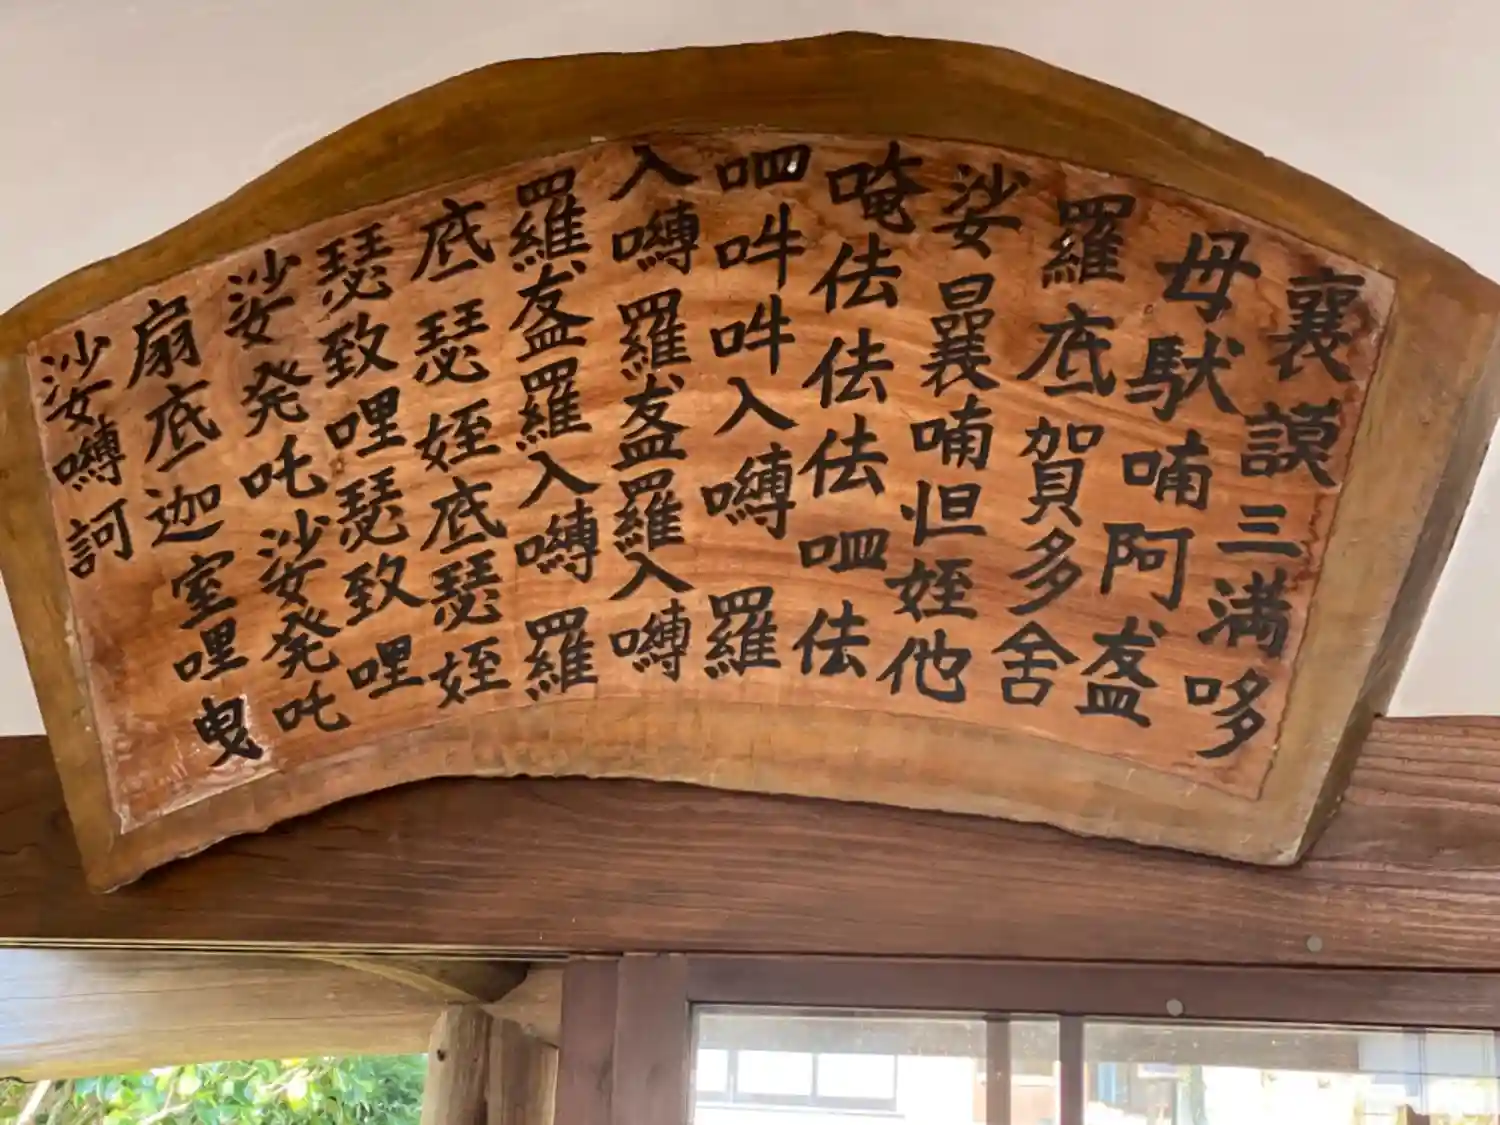 襄謨三満哆
母馱喃阿盋
羅底賀多舎
娑曩喃怛姪他
唵佉佉佉呬佉
呬吽吽入嚩羅
入嚩羅盋羅入嚩
羅盋羅入嚩羅
底瑟姪底瑟姪
瑟致哩瑟致哩
娑発吒娑発吒
扇底迦室哩曳
娑嚩訶